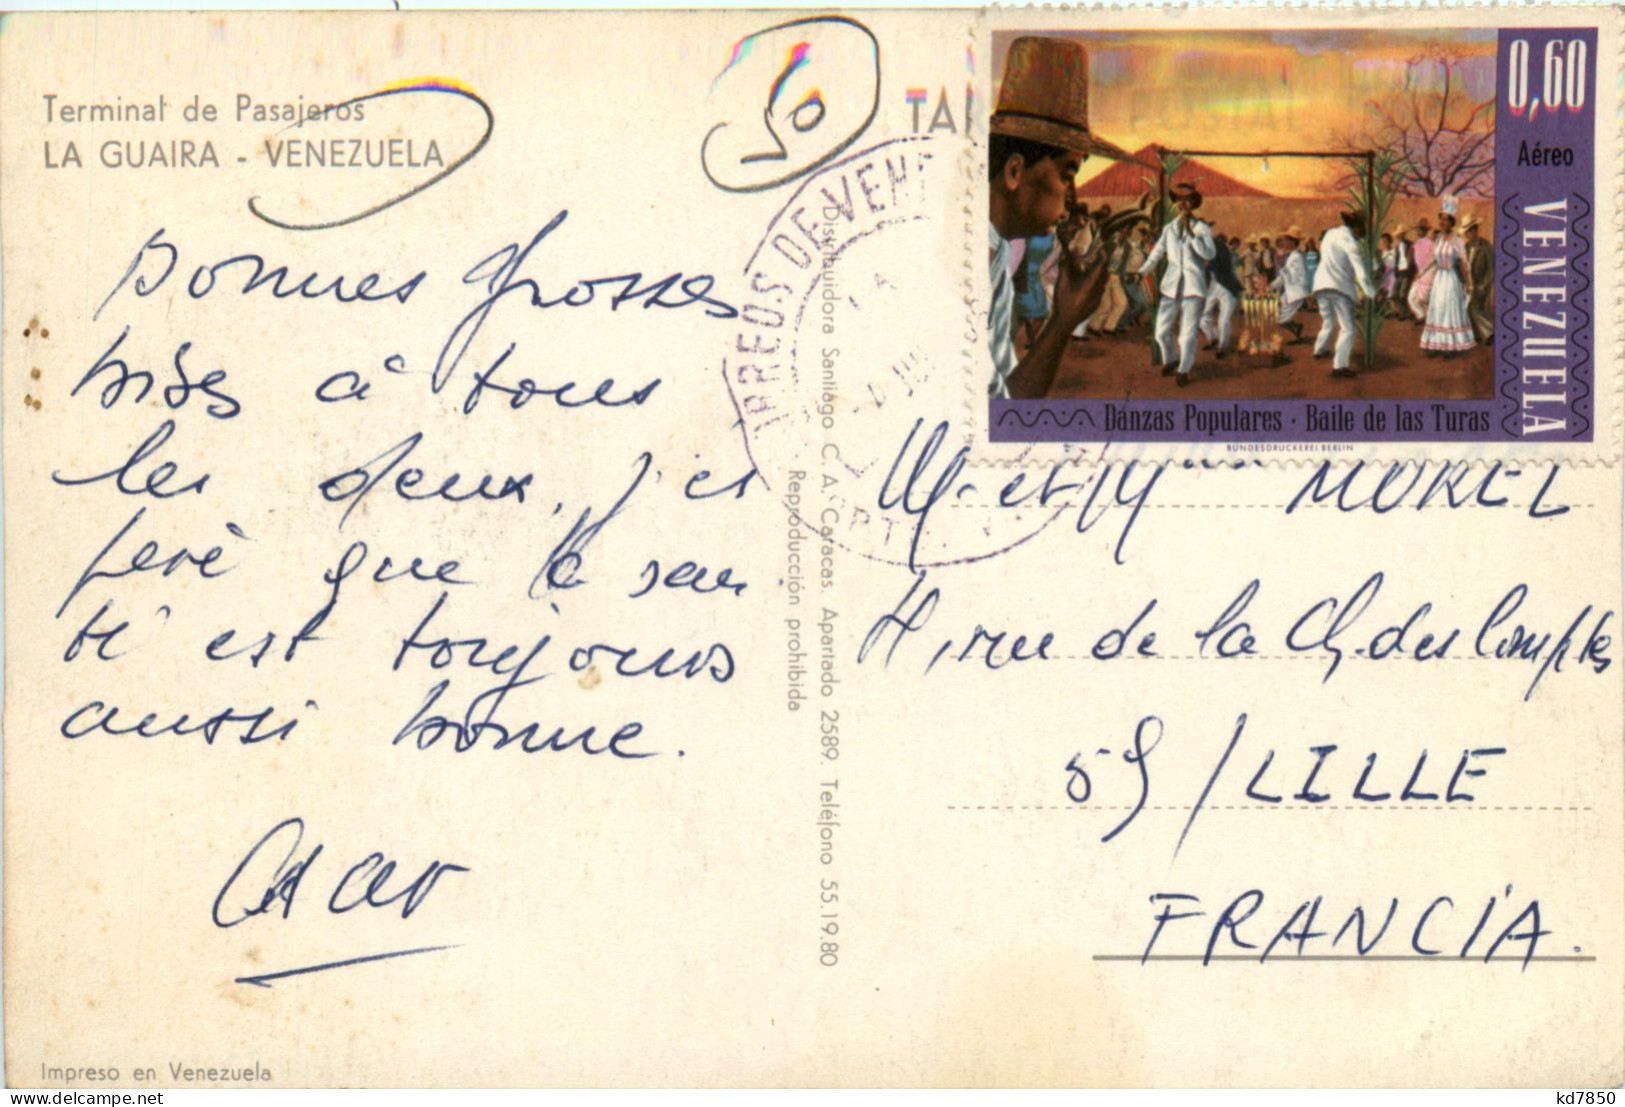 Terminal de Pasajeros
LA GUAIRA - VENEZUELA
50
Bonnes grosses
bises à tous
les deux, j'es
père que la san
té est toujours
aussi bonne.
TA
CORREOS DE VENE
LA
Distribuidora Santiago C. A. Caracas. Apartado 2589. Teléfono 55.19.80
Reproducción prohibida
0,60
Aéreo
VENEZUELA
Danzas Populares · Baile de las Turas
BUNDESDRUCKEREI BERLIN
M. et Mme MOREL
rue de la Ch. des Comptes
59/LILLE
FRANCIA.
Impreso en Venezuela
kd7850